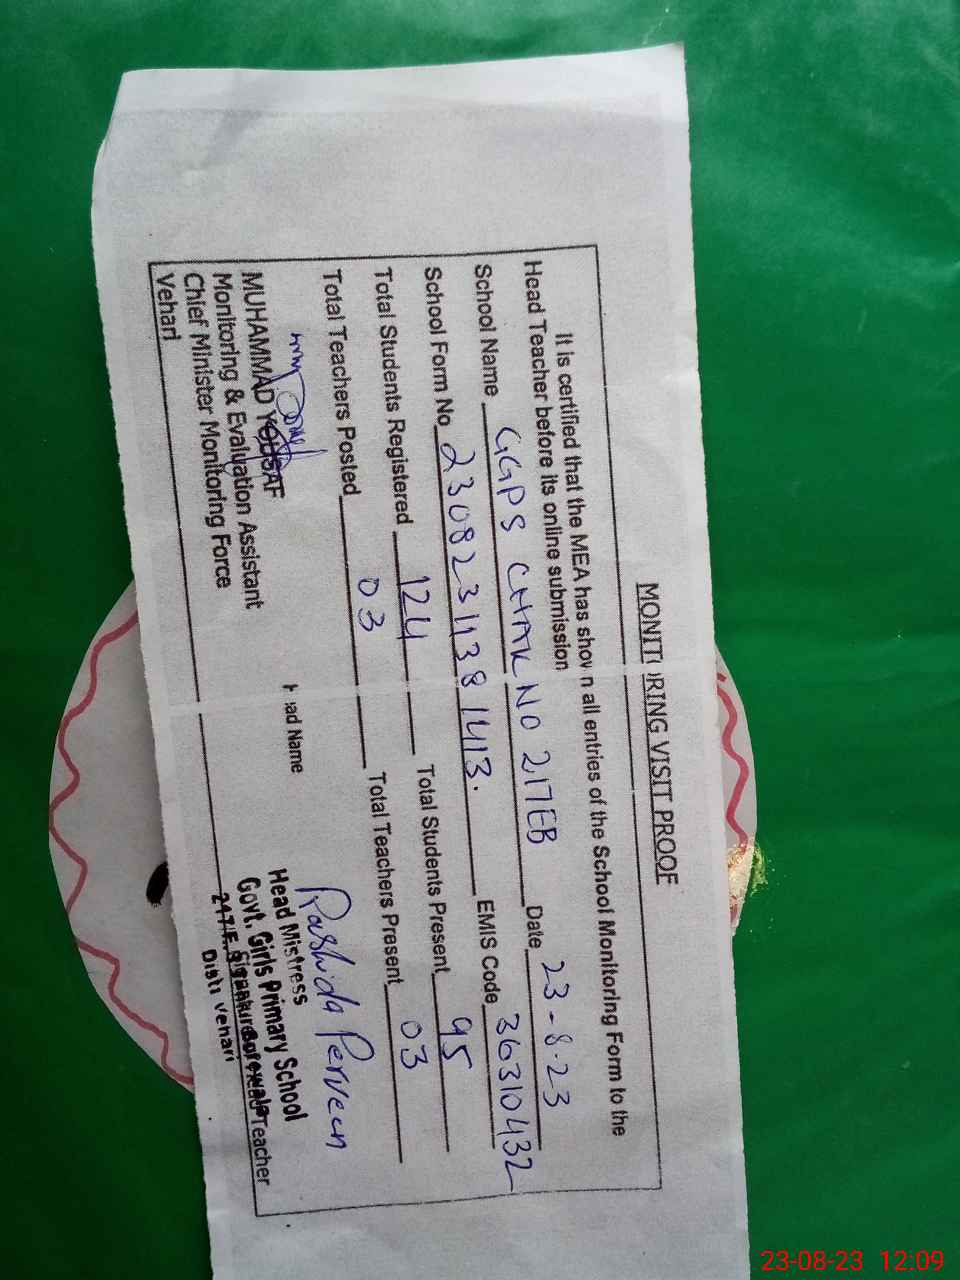 MONITORING VISIT PROOF
It is certified that the MEA has shown all entries of the School Monitoring Form to the
Head Teacher before its online submission
School Name GGPS CHAK NO 217EB Date 23-8-23
School Form No 23082311381413. EMIS Code 36310432
Total Students Registered 124 Total Students Present 95
Total Teachers Posted 03 Total Teachers Present 03
Rashida Perveen
MUHAMMAD YOUSAF Head Name Head Mistress
Monitoring & Evaluation Assistant Govt. Girls Primary School
Chief Minister Monitoring Force Teacher
Vehari Distt Vehari
23-08-23 12:09